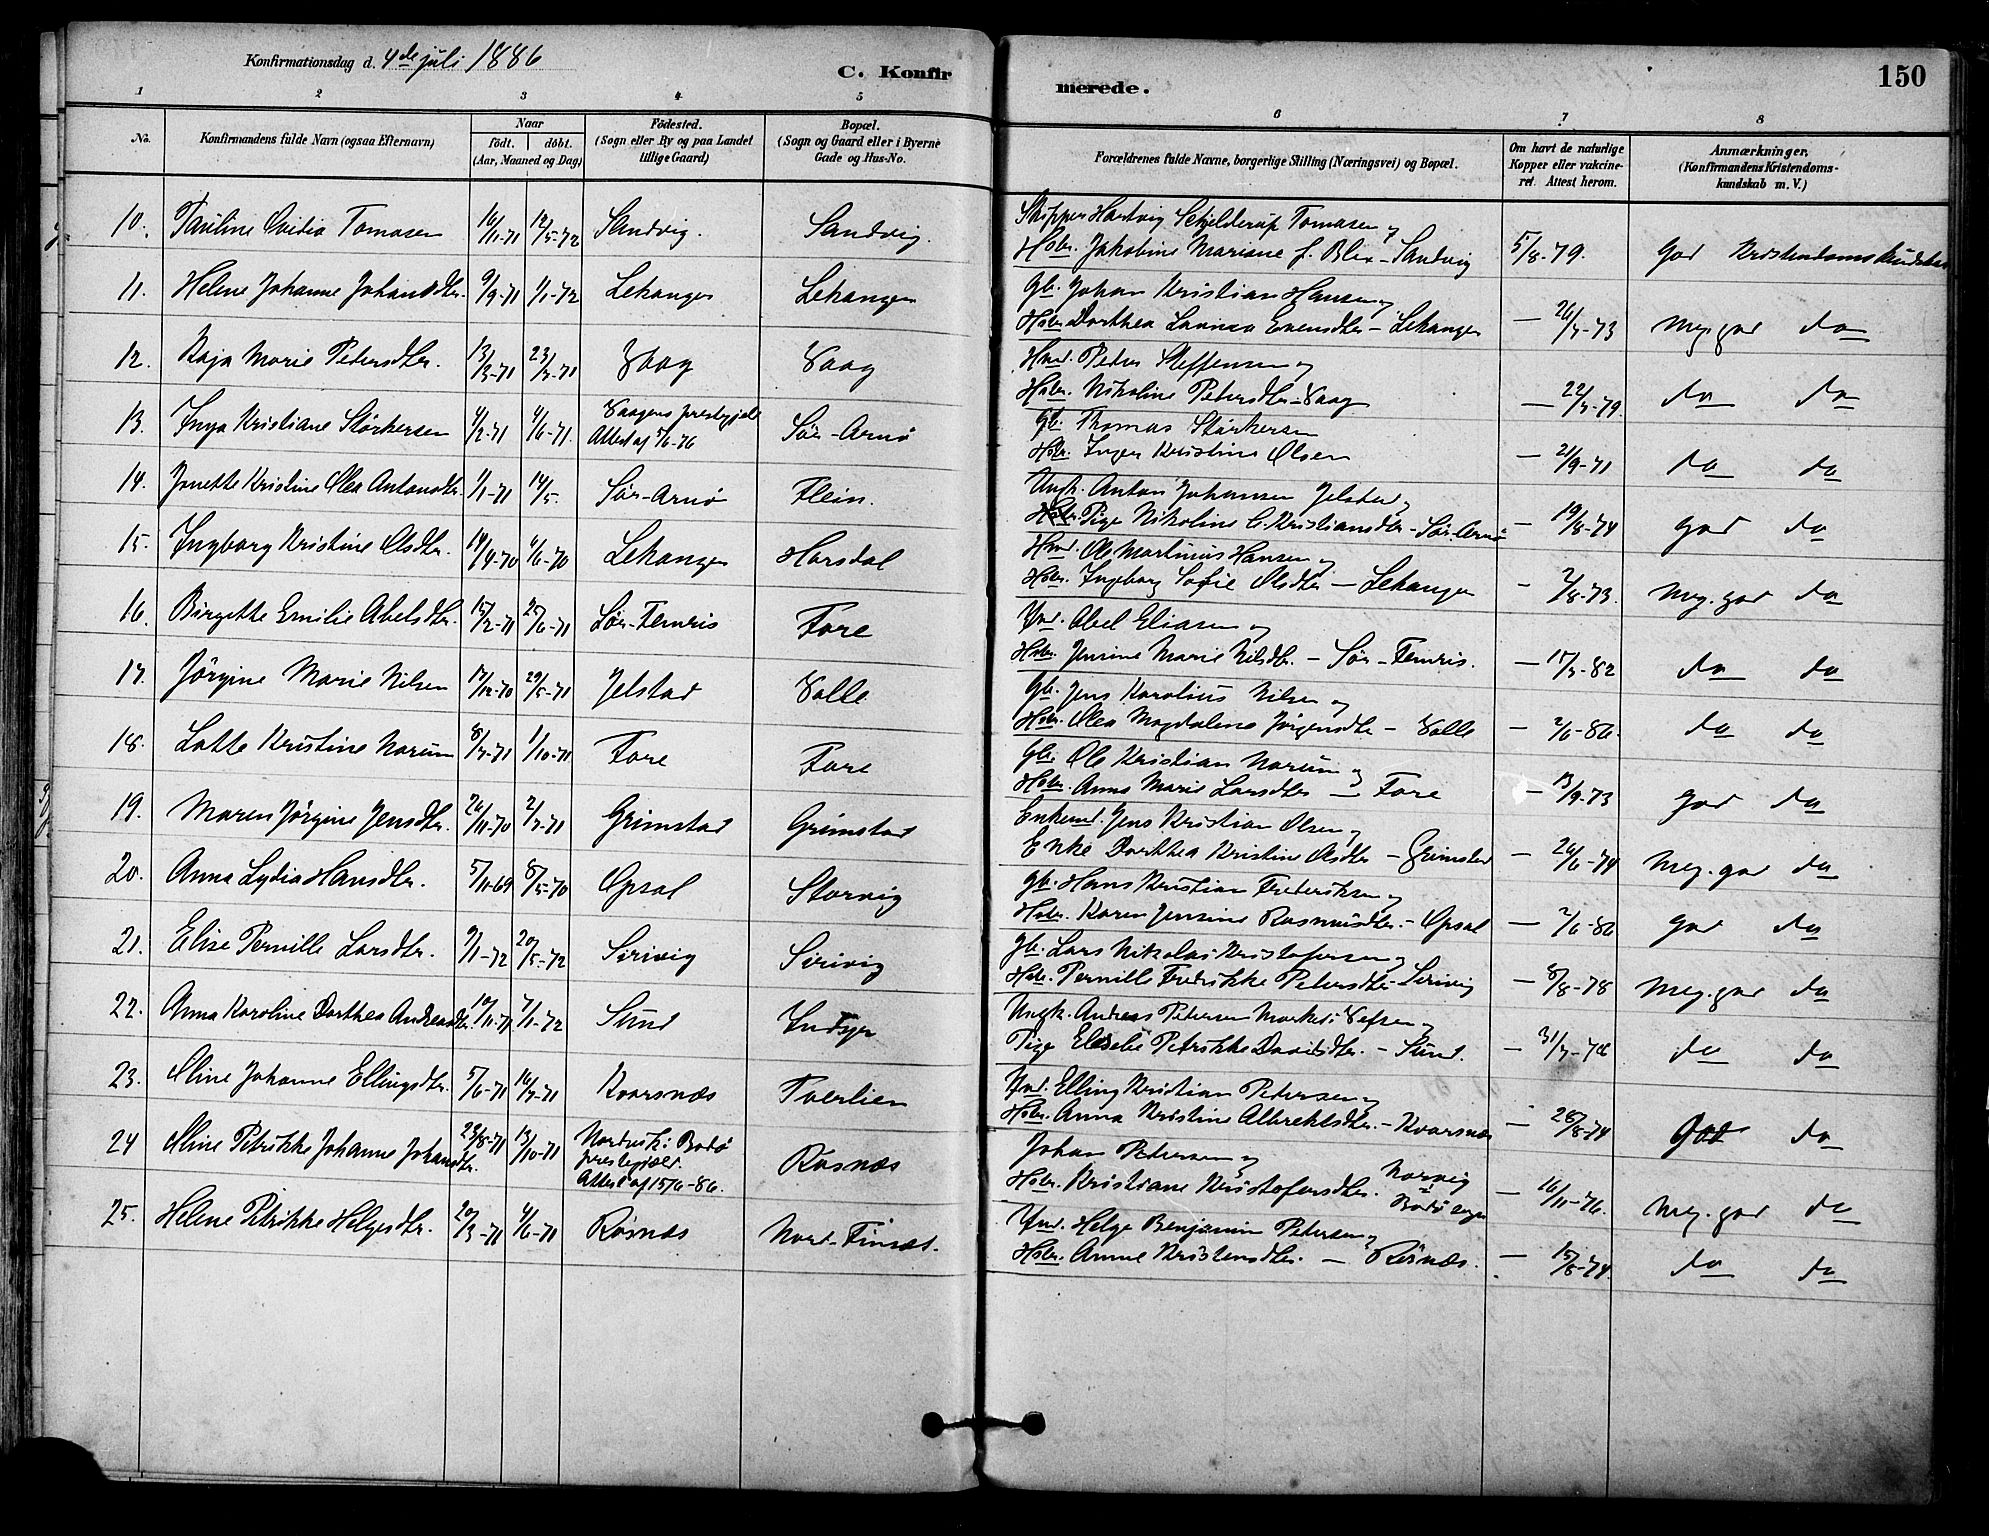 Konfirmationsdag d. 4de juli 1886
C. Konfir
merede.
150
1 2 3 4 5 6 7 8
No.
Konfirmandens fulde Navn (ogsaa Efternavn)
Naar
födt. döbt.
(Aar, Maaned og Dag)
Födested.
(Sogn eller By og paa Landet
tillige Gaard)
Bopæl.
(Sogn og Gaard eller i Byerne
Gade og Hus-No.
Forældrenes fulde Navne, borgerlige Stilling (Næringsvei) og Bopæl.
Om havt de naturlige
Kopper eller vakcine-
ret. Attest herom.
Anmærkninger.
(Konfirmandens Kristendoms-
kundskab m. V.)
10. Pauline Ovidia Tomasen 16/11-71 12/5-72 Sandvig. Sandvig.
Skipper Hartvig Schjelderup Tomasen og
Hstr. Jakobine Mariane f. Blix - Sandvig 5/8-79. God Kristendomskundskab
11. Helene Johanne Johansdtr. 9/9-71 1/1-72 Lekanger Lekanger
Gb. Johan Kristian Hansen og
Hstr. Dorthea Lovisa Evensdtr - Lekanger - 26/7-73 Meg. god do
12. Kaja Marie Petersdtr. 13/3-71 23/7-71 Vaag Vaag
Hmd. Peder Steffensen og
Hstr. Nikoline Petersdtr - Vaag - 22/7-79. do do
13. Inga Kristiane Størkersen 4/2-71 4/6-71. Vaagens prestegjeld
Attest af 5/6-76 Sør-Arnø
Gb. Thomas Størkersen
Hstr. Inger Kristine Olsen - 21/9-71 do do
14. Jonette Kristine Olea Antonsdtr. 1/1-71 14/5. Sør-Arnø Flein.
Ungk. Anton Johansen Jelstad og
Pige Nikoline C. Kristiansdtr - Sør-Arnø - 19/8-74 god do
15. Ingborg Kristine Olsdtr. 14/4-70 6/6-70 Lekanger Horsdal
Hmd. Ole Martinus Hansen og
Hstr. Ingeborg Sofie Olsdtr - Lekanger - 7/8-73. Meg. god do
16. Birgitte Emilie Abelsdtr. 15/2-71 25/6-71 Sør-Femris Fore
Ind. Abel Eliasen og
Hstr. Jensine Marie Nilsdtr. - Sør-Femris. - 15/7-82 do do
17. Jørgine Marie Nilsen 17/12-70 29/5-71 Jelstad Valle
Gb. Jens Karolius Nilsen og
Hstr. Olea Magdalena Jørgensdtr - Valle - 2/6-86. do do
18. Lotte Kristine Norum 8/7-71 1/10-71 Fore Fore
Gb. Ole Kristian Norum og
Hstr. Anna Marie Larsdtr - Fore - 13/9-73 god do
19. Maren Jørgine Jensdtr. 26/11-70 2/7-71 Grimstad Grimstad
Enkemd. Jens Kristian Olsen og
Enke Dorthea Kristine Olsdtr - Grimstad - 26/6-74 Meg. god do
20. Anna Lydia Hansdtr. 5/11-69 8/5-70 Opsal Storvig
Gb. Hans Kristian Frederiksen og
Hstr. Karen Jensine Rasmusdtr. - Opsal - 2/6-86 god do
21. Elise Pernille Larsdtr. 9/1-72 20/5-72 Sirivig Sirivig
Gb. Lars Nikolai Kristofersen og
Hstr. Pernille Fredrikke Petersdtr - Sirivig - 8/8-78 Meg. god do
22. Anna Karoline Dorthea Andreasdtr. 10/11-71 7/1-72 Sund Indyr
Ungk. Andreas Petersen Marked i Vefsen og
Pige Petrikke Davidsdtr. - Sund. - 31/7-76 do do
23. Oline Johanne Ellingsdtr. 5/6-71 16/7-71 Kvarsnæs Tverlien
Ind. Elling Kristian Petersen og
Hstr. Anna Kristine Albrektsdtr. - Kvarsnæs - 28/8-74 God do
24 Oline Petrikke Johanne Johansdtr. 23/8-71 13/10-71 Nordvik i Bodø
prestegjæld.
Attest af 15/6-86. Rosnæs
Johan Petersen og
Hstr. Kristiane Kristofersdtr. Norvig
i Bodø sogn - 16/11-76. Meg. god do
25. Helene Petrikke Helgesdtr. 20/3-71 4/6-71 Røsnæs Nord-Finsæt.
Ind. Helge Benjamin Petersen og
Hstr. Anne Kristensdtr. - Røsnæs. - 15/8-74. do do